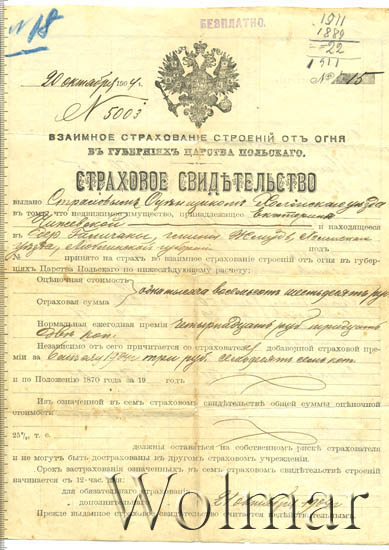 № 18
БЕЗПЛАТНО.
1911
1889
22
1911
№ 15
20 октября 1904 г.
N 5003
ВЗАИМНОЕ СТРАХОВАНІЕ СТРОЕНІЙ ОТЪ ОГНЯ
ВЪ ГУБЕРНІЯХЪ ЦАРСТВА ПОЛЬСКАГО.
СТРАХОВОЕ СВИДѢТЕЛЬСТВО
выдано Страховымъ Оцѣнщикомъ Холмскаго уѣзда
въ томъ, что недвижимое имущество, принадлежащее Екатеринѣ
и находящееся
въ гмины уѣзда, Люблинской губерніи подъ
№ принято на страхъ во взаимное страхованіе строеній отъ огня въ губер-
ніяхъ Царства Польскаго по нижеслѣдующему расчету:
Оцѣночная стоимость
Страховая сумма
одна тысяча восемьсотъ шестьдесятъ руб
Нормальная ежегодная премія четырнадцать руб тридцать
двѣ коп.
Независимо отъ сего причитается со страхователя добавочной страховой пре-
міи за 1904 г. три руб. семьдесятъ семь коп
и по Положенію 1870 года за 19 годъ
Изъ означенной въ семъ страховомъ свидѣтельствѣ общей суммы оцѣночной
стоимости
25%, т. е.
должны оставаться на собственномъ рискѣ страхователя
и не могутъ быть дострахованы въ другомъ страховомъ учрежденіи.
Срокъ застрахованія означенныхъ въ семъ страховомъ свидѣтельствѣ строеній
начинается съ 12-час. дня:
для обязательнаго страхованія
дополнительнаго
21 октября 1904 г.
Прежде выданное страховое свидѣтельство считается недѣйствительнымъ.
Wolmar